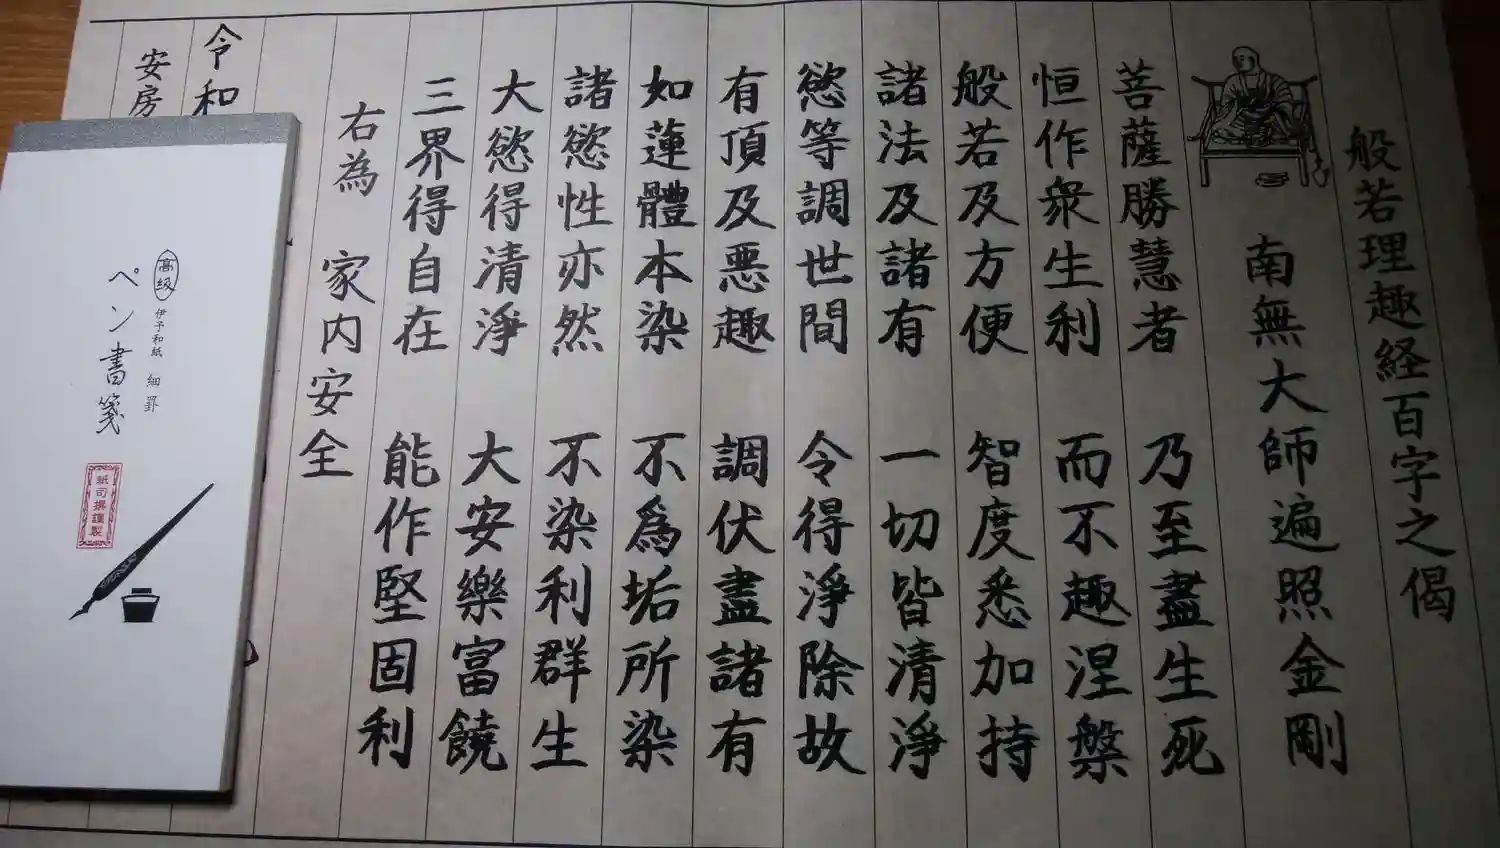 般若理趣経百字之偈
南無大師遍照金剛
菩薩勝慧者 乃至盡生死
恒作衆生利 而不趣涅槃
般若及方便 智度悉加持
諸法及諸有 一切皆清淨
慾等調世間 令得淨除故
有頂及悪趣 調伏盡諸有
如蓮體本染 不為垢所染
諸慾性亦然 不染利群生
大慾得清淨 大安樂富饒
三界得自在 能作堅固利
右為 家内安全
令和
安房
高級
伊予和紙 細罫
ペン書箋
紙司撰謹製